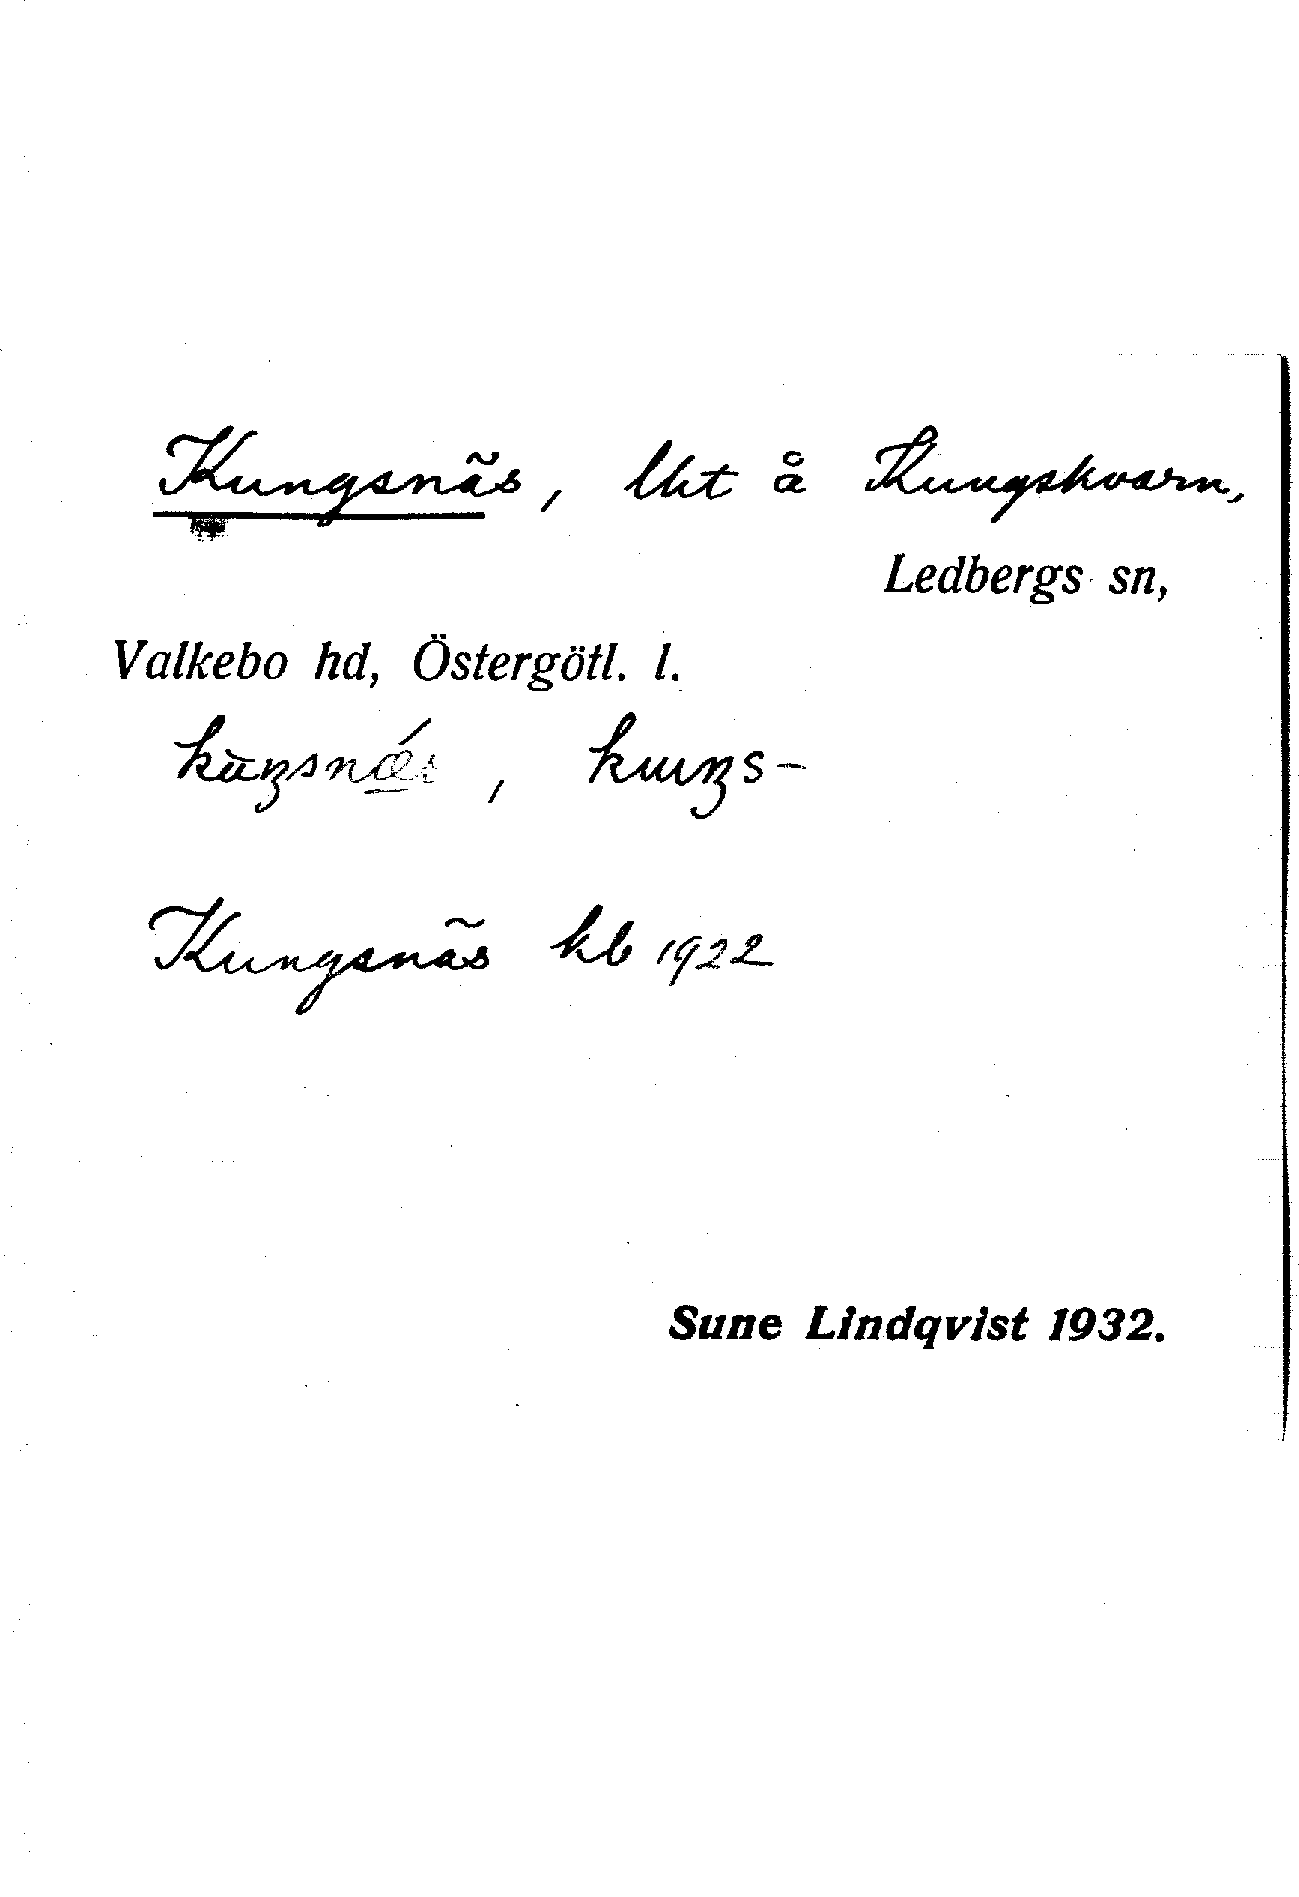 Kungsnäs, lht å Kungskvarn,
Ledbergs sn,
Valkebo hd, Östergötl. l.
Kungsnäs kb 1922
Sune Lindqvist 1932.